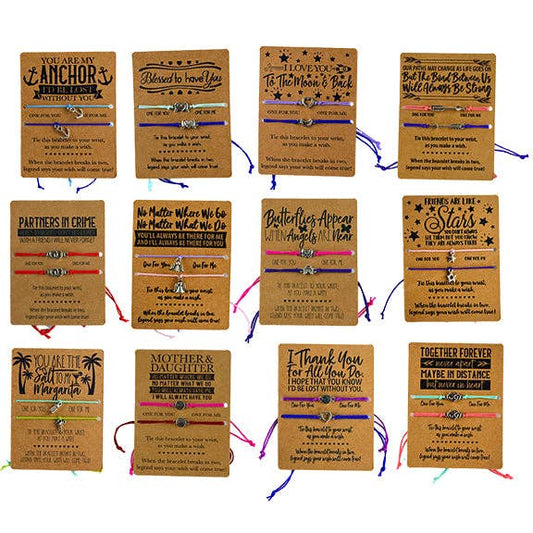 YOU ARE MY
ANCHOR
I'D BE LOST
WITHOUT YOU
ONE FOR YOU ONE FOR ME
Tie this bracelet to your wrist,
as you make a wish.
When the bracelet breaks in two,
legend says your wish will come true!
Blessed to have You
ONE FOR YOU ONE FOR ME
Tie this bracelet to your wrist,
as you make a wish.
When the bracelet breaks in two,
legend says your wish will come true!
I LOVE YOU
To The Moon & Back
ONE FOR YOU ONE FOR ME
Tie this bracelet to your wrist,
as you make a wish.
When the bracelet breaks in two,
legend says your wish will come true!
OUR PATHS MAY CHANGE AS LIFE GOES ON
But The Bond Between Us
Will Always Be Strong
ONE FOR YOU ONE FOR ME
Tie this bracelet to your wrist,
as you make a wish.
When the bracelet breaks in two,
legend says your wish will come true!
PARTNERS IN CRIME
WITH A FRIEND I WILL NEVER FORGET
ONE FOR YOU ONE FOR ME
Tie this bracelet to your wrist,
as you make a wish.
When the bracelet breaks in two,
legend says your wish will come true!
No Matter Where We Go
No Matter What We Do
YOU'LL ALWAYS BE THERE FOR ME
AND I'LL ALWAYS BE THERE FOR YOU
One For You One For Me
Tie this bracelet to your wrist
as you make a wish.
When the bracelet breaks in two,
legend says your wish will come true!
Butterflies Appear
WHEN Angels ARE Near
ONE FOR YOU ONE FOR ME
TIE THIS BRACELET TO YOUR WRIST,
AS YOU MAKE A WISH.
WHEN THE BRACELET BREAKS IN TWO,
LEGEND SAYS YOUR WISH WILL COME TRUE!
FRIENDS ARE LIKE
Stars
YOU DON'T ALWAYS
SEE THEM BUT YOU KNOW
THEY ARE ALWAYS THERE
ONE FOR YOU ONE FOR ME
Tie this bracelet to your wrist,
as you make a wish.
When the bracelet breaks in two,
legend says your wish will come true!
YOU ARE THE
Salt TO MY
Margarita
ONE FOR YOU ONE FOR ME
TIE THIS BRACELET TO YOUR WRIST,
AS YOU MAKE A WISH.
WHEN THE BRACELET BREAKS IN TWO,
LEGEND SAYS YOUR WISH WILL COME TRUE!
MOTHER &
DAUGHTER
NO MATTER WHERE WE GO
NO MATTER WHAT WE DO
I WILL ALWAYS HAVE YOU
ONE FOR YOU ONE FOR ME
Tie this bracelet to your wrist,
as you make a wish.
When the bracelet breaks in two,
legend says your wish will come true!
I Thank You
For All You Do
I HOPE THAT YOU KNOW
I'D BE LOST WITHOUT YOU.
One For You One For Me
Tie this bracelet to your wrist
as you make a wish.
When the bracelet breaks in two,
legend says your wish will come true!
TOGETHER FOREVER
never apart
MAYBE IN DISTANCE
but never in heart
One For You One For Me
Tie this bracelet to your wrist
as you make a wish.
When the bracelet breaks in two,
legend says your wish will come true!